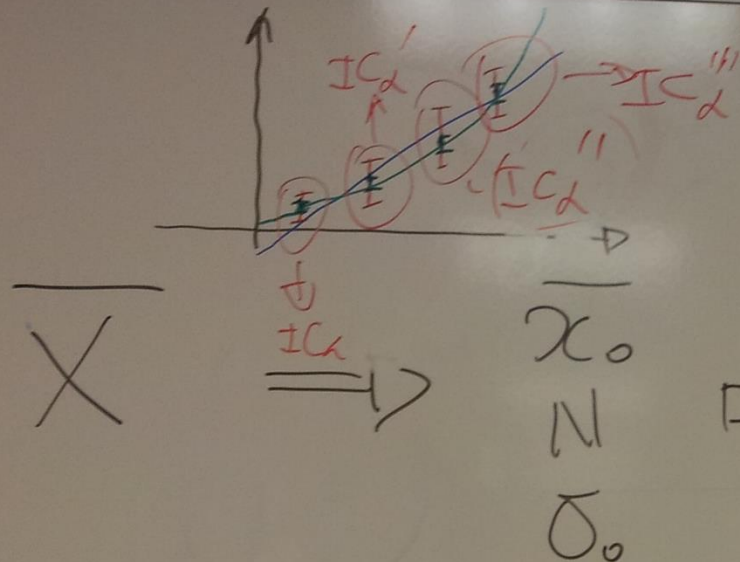 IC'α
IC'''α
IC''α
ICα
X̅ ⟹ x̅₀
N
σ₀